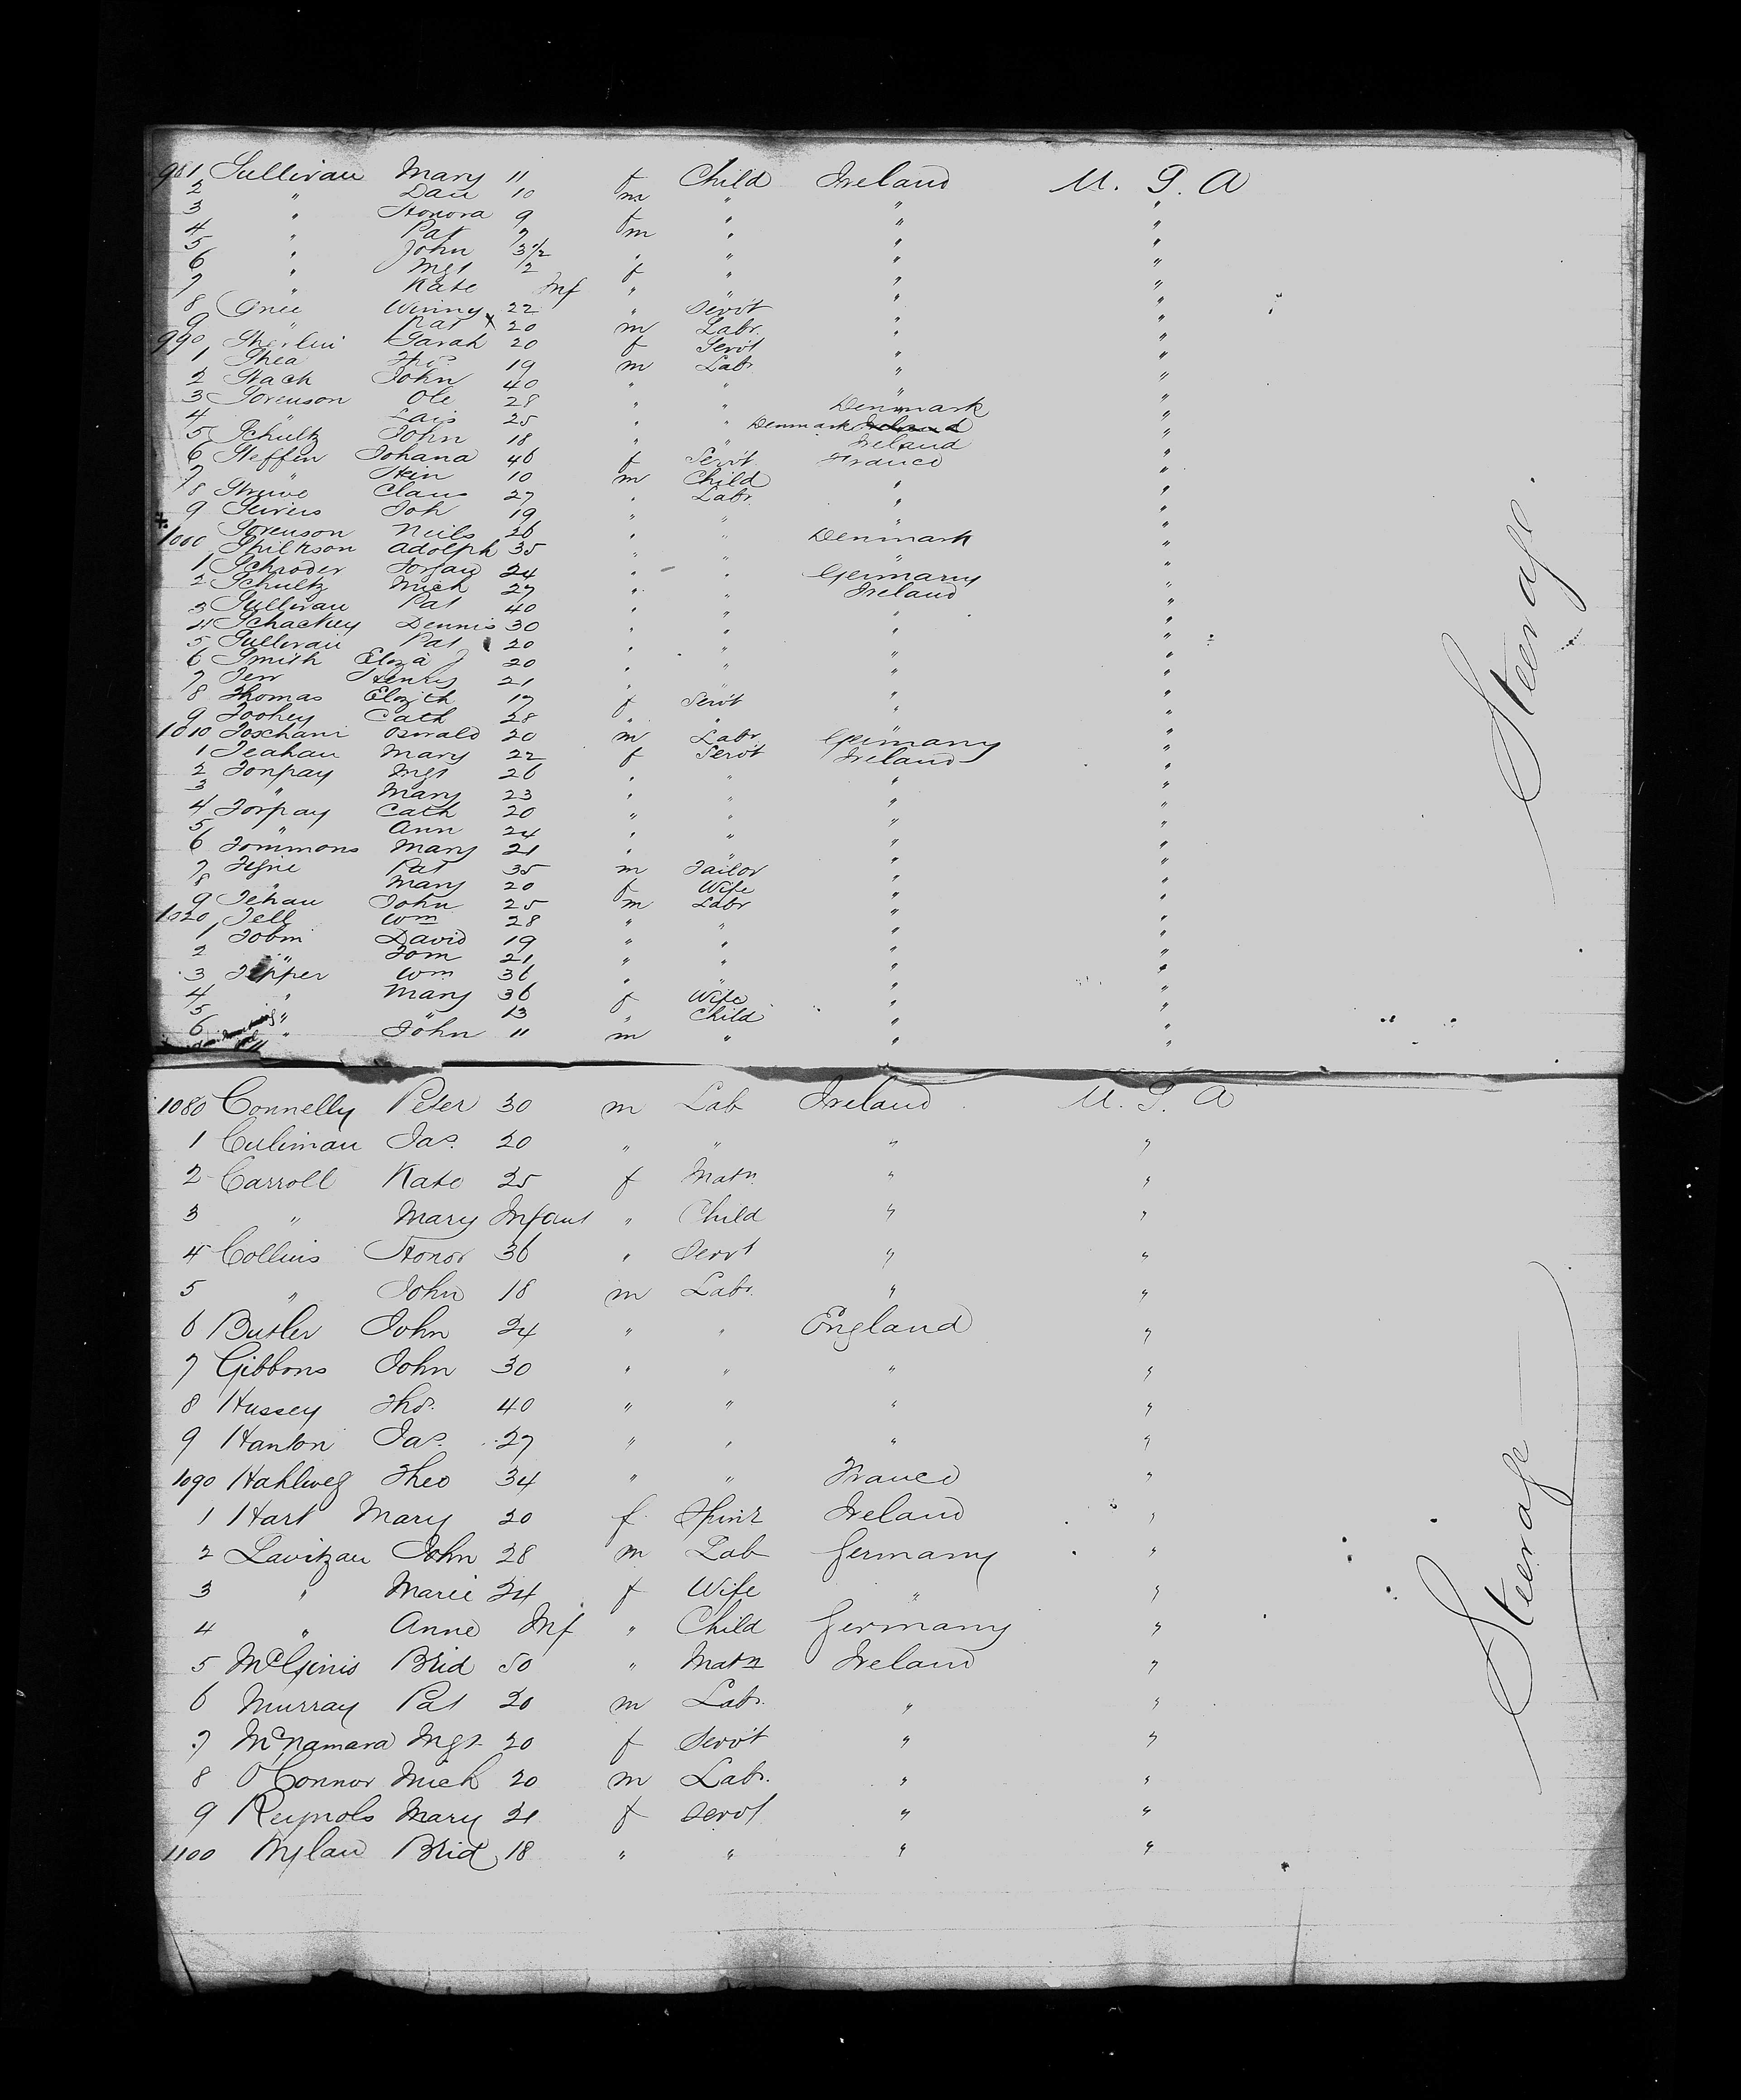 981 Sullivan Mary 11 f Child Ireland U. S. A
2 " Dan 10 m " " "
3 " Honora 9 f " " "
4 " Pat 7 m " " "
5 " John 3 1/2 " " " "
6 " Mgt 1/2 f " " "
7 " Kate Inf " " " "
8 Winny 22 " Servt " "
9 " Pat 20 m Labr. " "
990 Sarah 20 f Servt " "
1 Shea Thos. 19 m Labr " "
2 Stack John 40 " " " "
3 Sorenson Ole 28 " " Denmark "
4 " Lais 25 " " Denmark "
5 Schultz John 18 " " Ireland "
6 Steffen Johana 46 f Servt France "
7 " Stein 10 m Child " "
8 Struve Claus 27 " Labr. " "
9 Joh 19 " " " "
Sorenson Neils 26 " " Denmark "
1000 Adolph 35 " " " "
1 Schroder 24 " " Germany "
2 Schultz Mich 27 " " Ireland "
3 Sullivan Pat 40 " " " "
4 Schackey Dennis 30 " " " "
5 Sullivan Pat 20 " " " "
6 Smith Eliza J 20 " " " "
7 Terr Henry 21 " " " "
8 Thomas Elizth 17 f Servt " "
9 Toohey Cath 28 " " " "
1010 Toschani Oswald 20 m Labr Germany "
1 Teahan Mary 22 f Servt Ireland "
2 Tonpay Mgt 26 " " " "
3 " Mary 23 " " " "
4 Torpay Cath 20 " " " "
5 " Ann 24 " " " "
6 Tommons Mary 21 " " " "
7 Pat 35 m Tailor " "
8 " Mary 20 f Wife " "
9 Tehan John 25 m Labr " "
1020 Tell Wm 28 " " " "
1 Tobin David 19 " " " "
2 " Tom 21 " " " "
3 Tepper Wm 36 " " " "
4 " Mary 36 f Wife " "
5 " " 13 " Child " "
6 " John 11 m " " "
Steerage.
1080 Connelly Peter 30 m Lab Ireland U. S. A
1 Culinan Jas. 20 " " " "
2 Carroll Kate 25 f Matn " "
3 " Mary Infant " Child " "
4 Collins Honor 36 " Servt " "
5 " John 18 m Labr. " "
6 Butler John 24 " " England "
7 Gibbons John 30 " " " "
8 Hussey Thos. 40 " " " "
9 Hanlon Jas. 27 " " " "
1090 Hahlweg Theo 34 " " France "
1 Hart Mary 20 f Spinr Ireland "
2 Lavitzau John 28 m Lab Germany "
3 " Marie 24 f Wife " "
4 " Anne Inf " Child Germany "
5 McGinis Brid 50 " Matn Ireland "
6 Murray Pat 20 m Labr. " "
7 McNamara Mgt 20 f Servt " "
8 O'Connor Mich 20 m Labr. " "
9 Reynols Mary 21 f Servt " "
1100 Brid 18 " " " "
Steerage